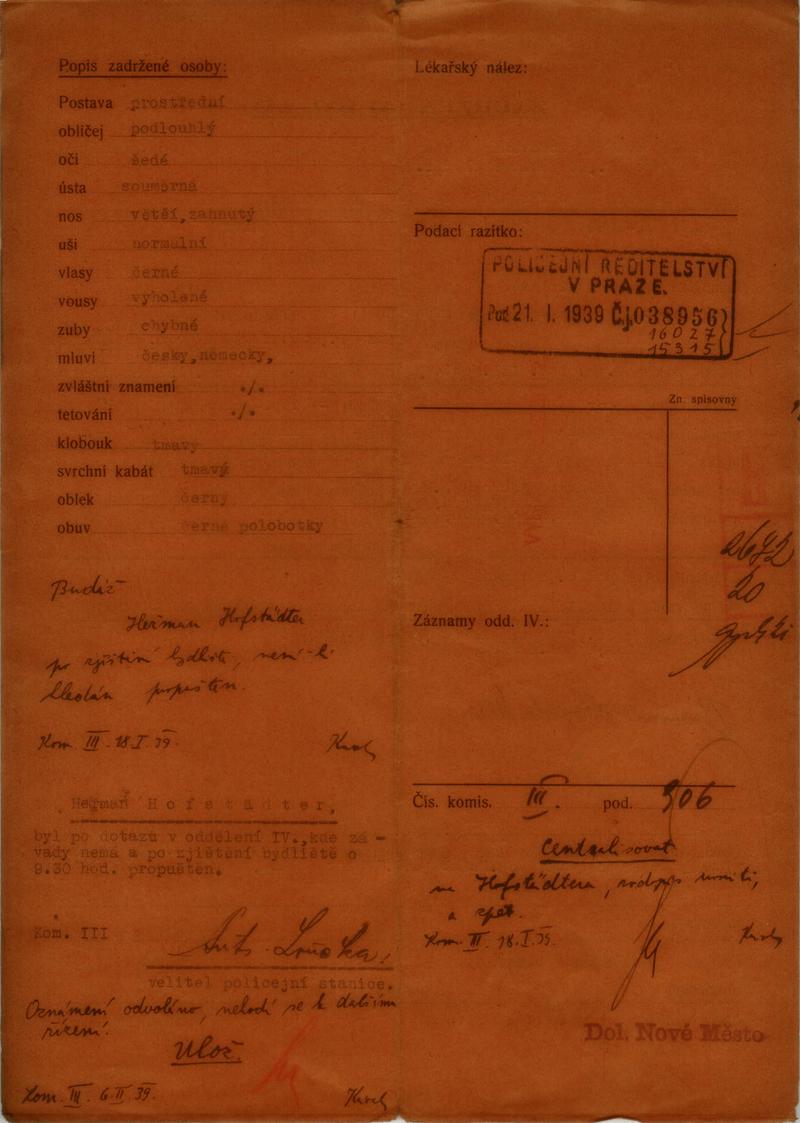 Popis zadržené osoby:
Postava prostřední
obličej podlouhlý
oči šedé
ústa souměrná
nos větší, zahnutý
uši normalní
vlasy černé
vousy vyholené
zuby chybné
mluví česky, německy,
zvláštní znamení ./.
tetování ./.
klobouk tmavy
svrchní kabát tmavý
oblek černý
obuv černé polobotky
Budiž
Heřman Hofstädter
po zjištění bydliště, není-li
hledán propuštěn.
Kom. III. 18.I.39.
Heřman Hofstädter,
byl po dotazu v oddělení IV., kde zá-
vady nemá a po zjištění bydliště o
9.30 hod. propuštěn.
Kom. III
velitel policejní stanice.
Oznámení odvoláno, nehodí se k dalšímu
řízení.
Ulož.
Kom. III. 6.II.39.
Lékařský nález:
Podací razítko:
POLICEJNÍ ŘEDITELSTVÍ
V PRAZE.
Pod 21. I. 1939 Č.j. 038956
16027
15315
Zn. spisovny
2692
20
Záznamy odd. IV.:
Čís. komis. III. pod. 906
Centralisovat
na Hofstädtera,
a zpět.
Kom. III. 18.I.39.
Dol. Nové Město